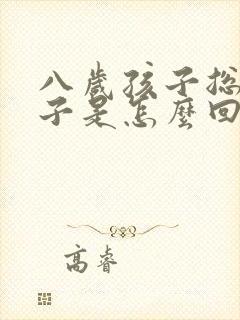 八歲孩子总
子是怎麼回
高睿